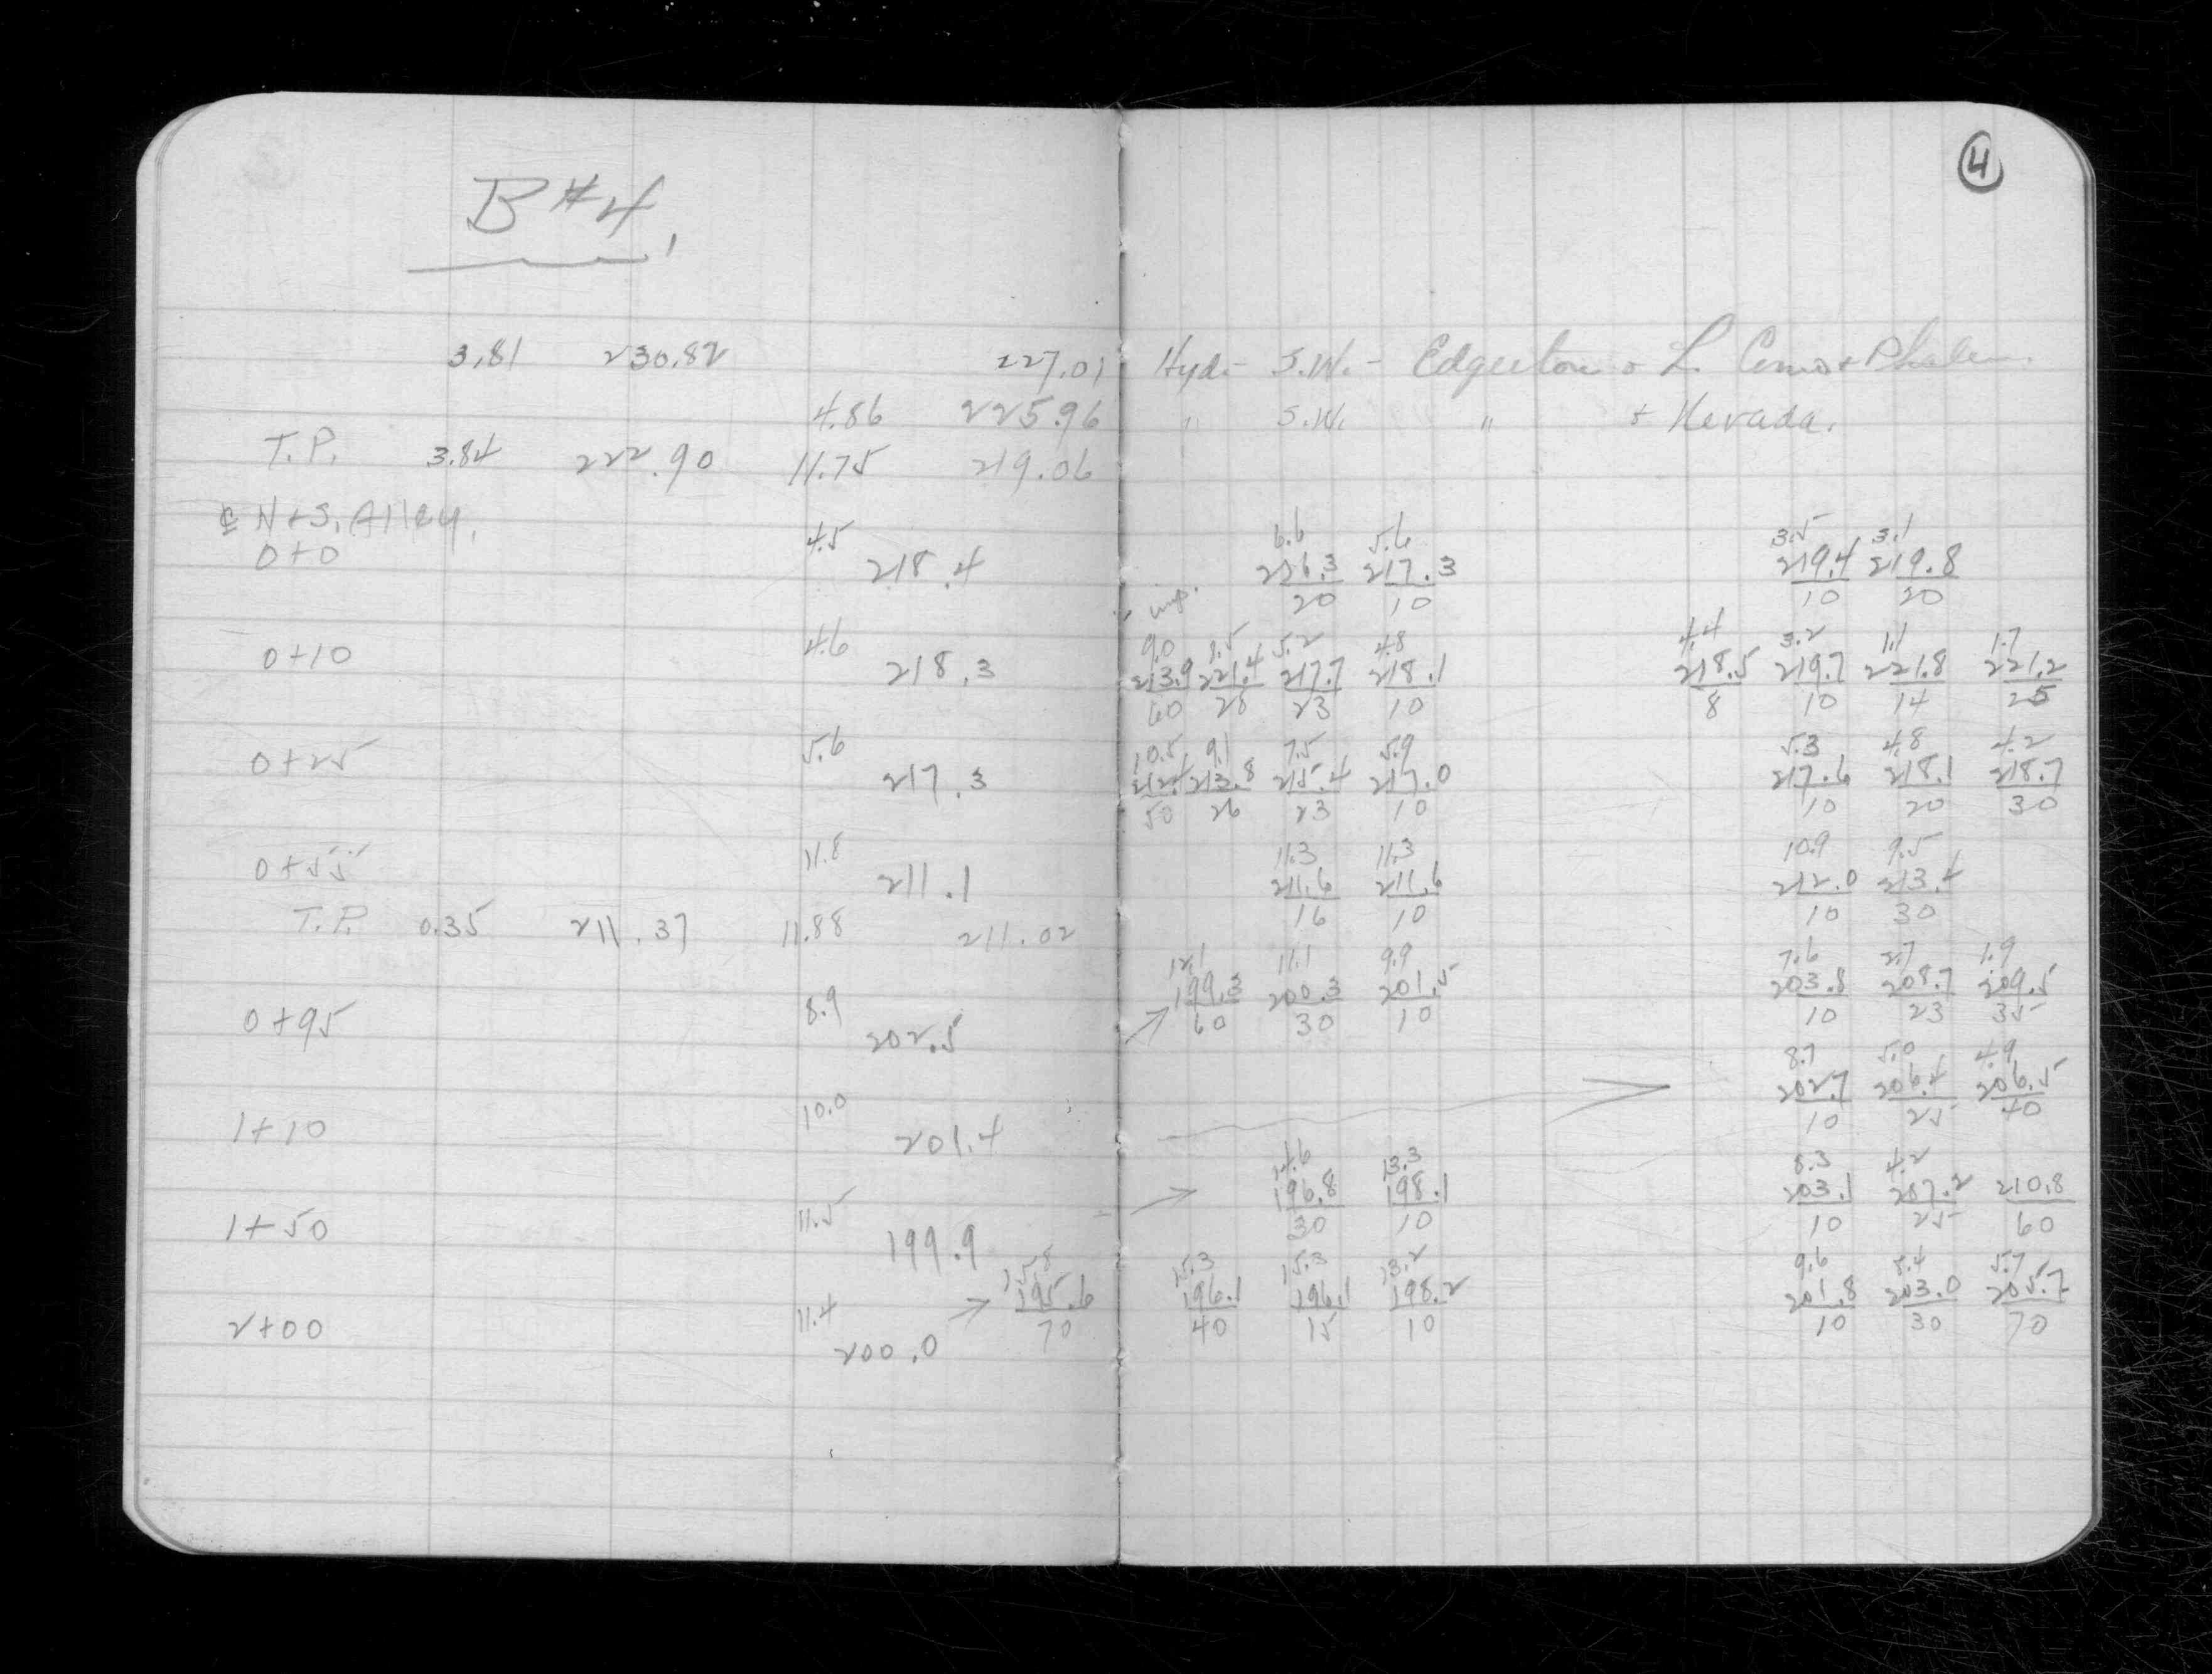 B#4,
4
3.81 230.82 227.01 Hyd.- S.W. - Edgerton + L. Como + Phalen.
4.86 225.96 " S.W. " + Nevada.
T.P. 3.84 222.90 11.75 219.06
℄ N+S. Alley.
6.6 5.6 3.5 3.1
0+0 4.5 218.4 216.3 217.3 219.4 219.8
20 10 10 20
9.0 1.5 5.2 4.8 4.4 3.2 1.1 1.7
0+10 4.6 218.3 213.9 221.4 217.7 218.1 218.5 219.7 221.8 221.2
60 28 23 10 8 10 14 25
10.5 9.1 7.5 5.9 5.3 4.8 4.2
0+25 5.6 217.3 212.4 213.8 215.4 217.0 217.6 218.1 218.7
50 26 23 10 10 20 30
11.3 11.3 10.9 9.5
0+55 11.8 211.1 211.6 211.6 212.0 213.4
16 10 10 30
T.P. 0.35 211.37 11.88 211.02
12.1 11.1 9.9 7.6 2.7 1.9
0+95 8.9 202.5 199.3 200.3 201.5 203.8 208.7 209.5
60 30 10 10 23 35
8.7 5.0 4.9
1+10 10.0 201.4 202.7 206.4 206.5
10 25 40
14.6 13.3 8.3 4.2
1+50 11.5 199.9 196.8 198.1 203.1 207.2 210.8
30 10 10 25 60
15.8 15.3 15.3 13.2 9.6 8.4 5.7
2+00 11.4 200.0 195.6 196.1 196.1 198.2 201.8 203.0 205.7
70 40 15 10 10 30 70